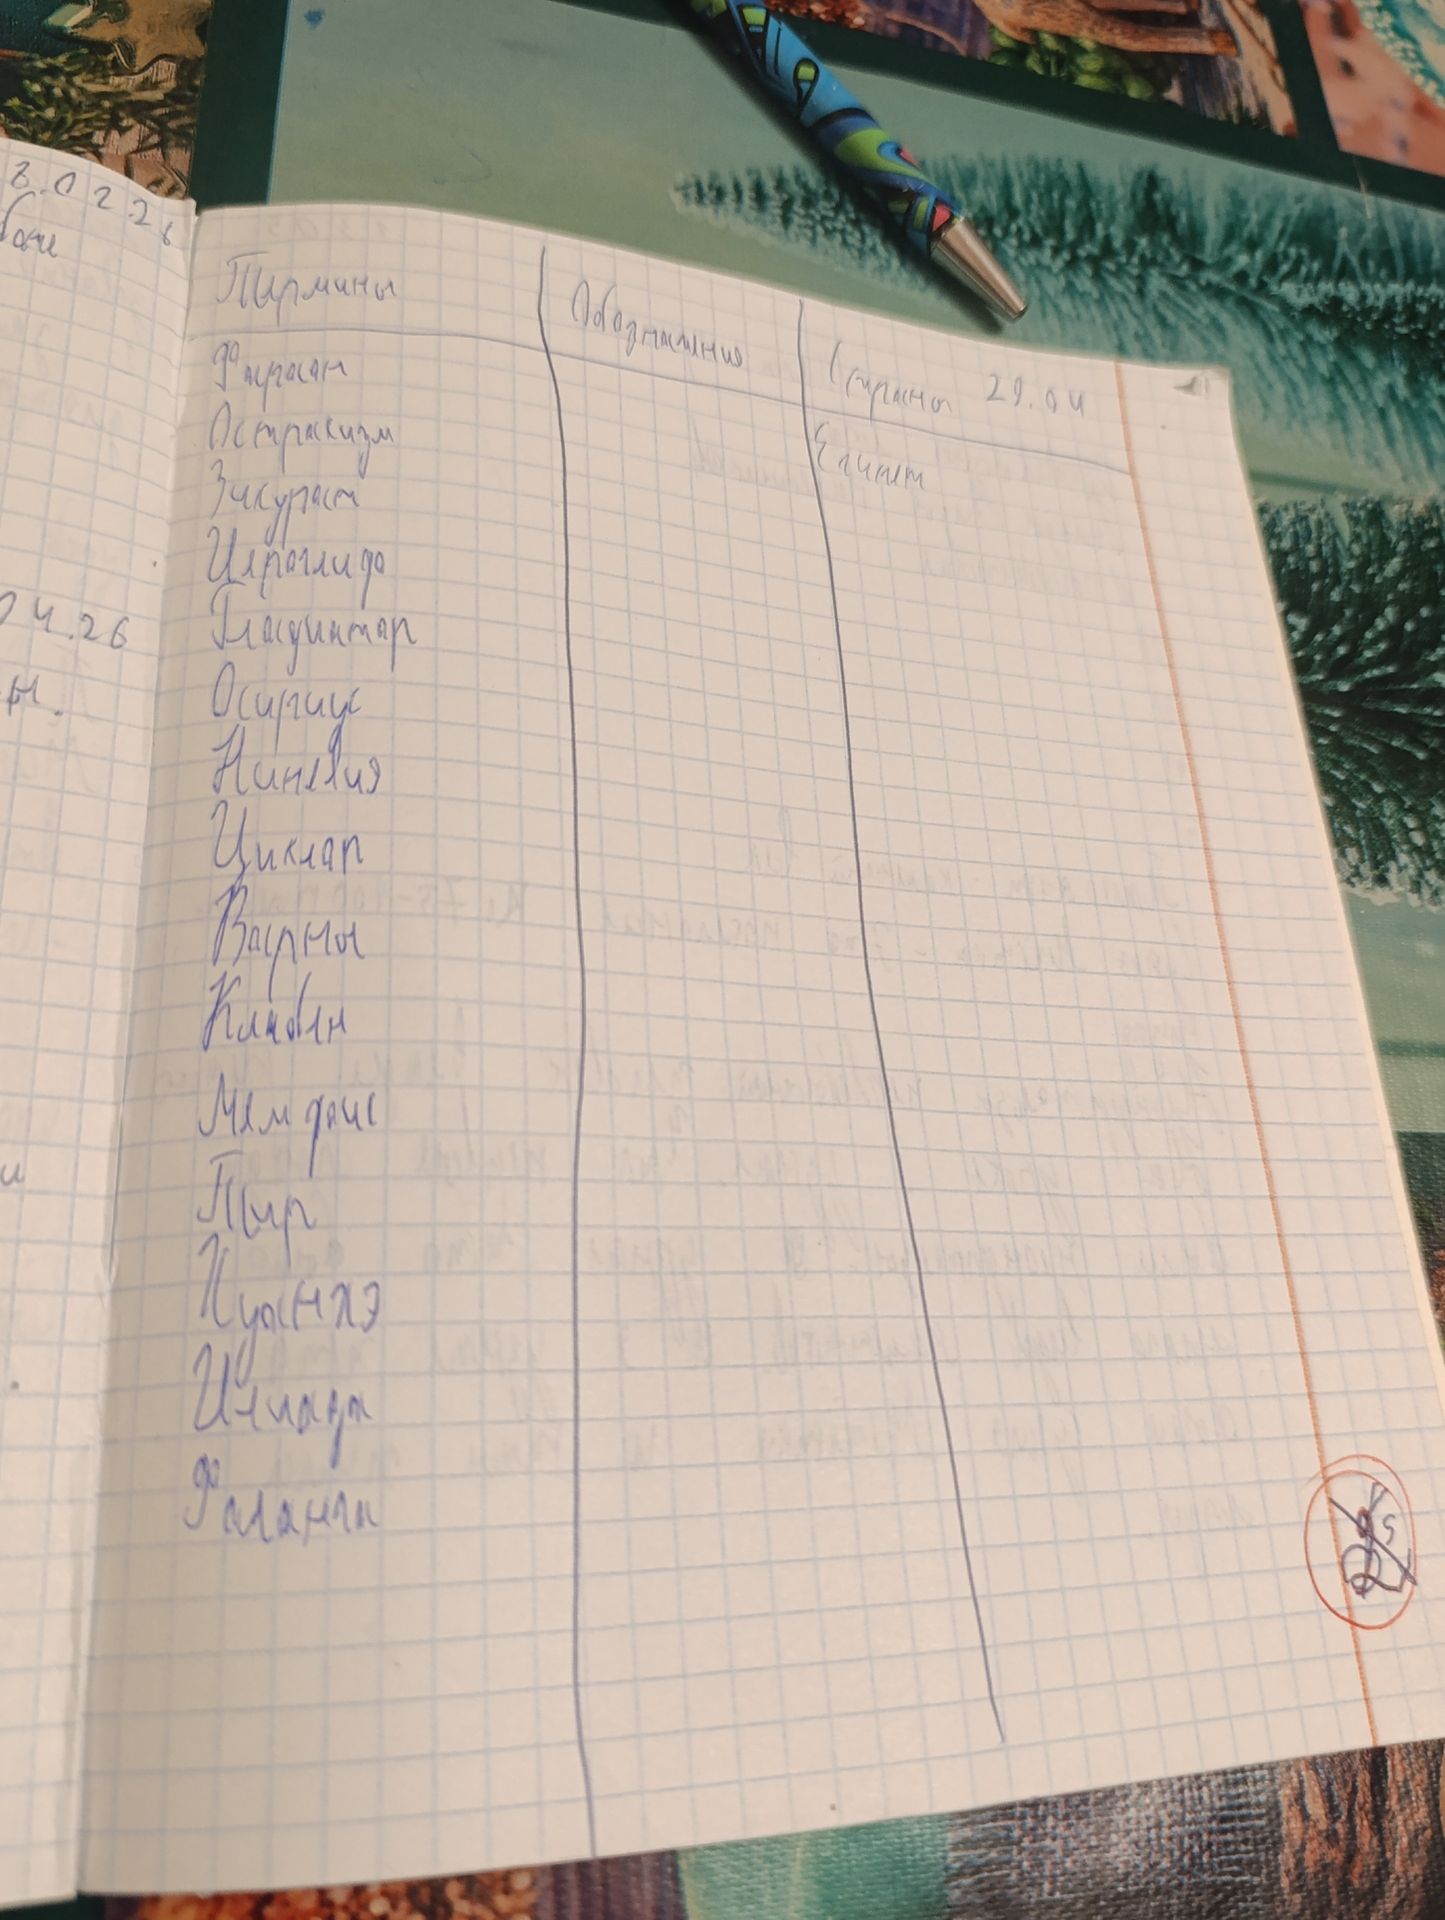 8.02.26
04.26
Термины
Обозначения
Страны 29.04
Фараон
Египет
Остракизм
Зикурат
Иероглифа
Гладиатор
Осирис
Ниневия
Циклоп
Варны
Клабен
Мемфис
Пир
Хуанхэ
Илиада
Фаланга